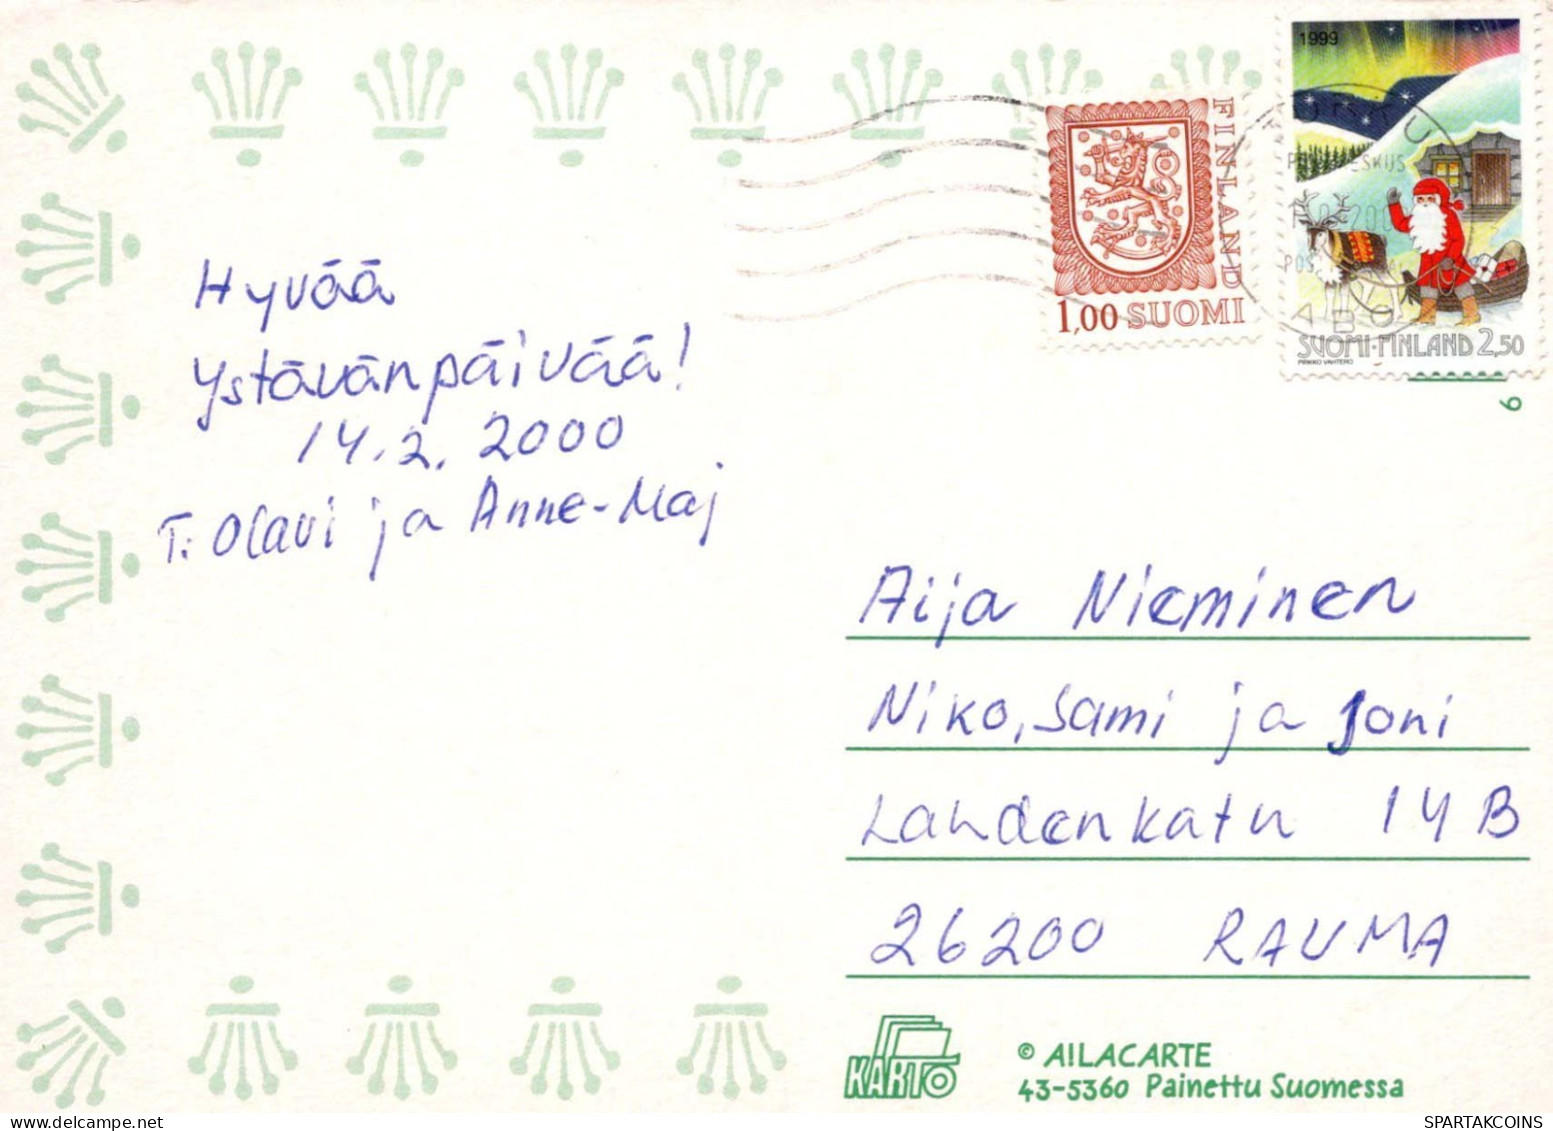 Hyvää
ystävänpäivää!
14.2. 2000
T: Olavi ja Anne-Maj
FINLAND
1,00 SUOMI
1999
SUOMI-FINLAND 2,50
PIRKKO VAHTERO
TURKU
ÅBO
6
Aija Nieminen
Niko, Sami ja Joni
Lahdenkatu 14 B
26200 RAUMA
KARTO
© A!LACARTE
43-5360 Painettu Suomessa
SPARTAKCOINS.COM